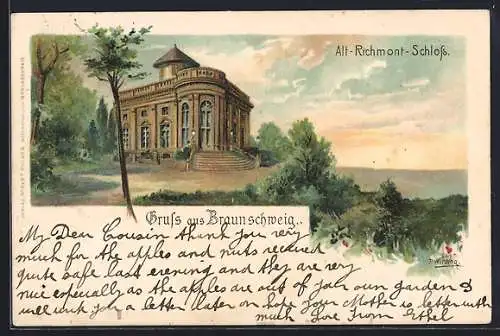 Alt-Richmont-Schloß.
Gruss aus Braunschweig..
My Dear Cousin thank you very
much for the apples and nuts received
quite safe last evening and they are very
nice especially as the apples are out of our own garden I
will write you a letter later on hope your Mother is better with
much Love From Ethel